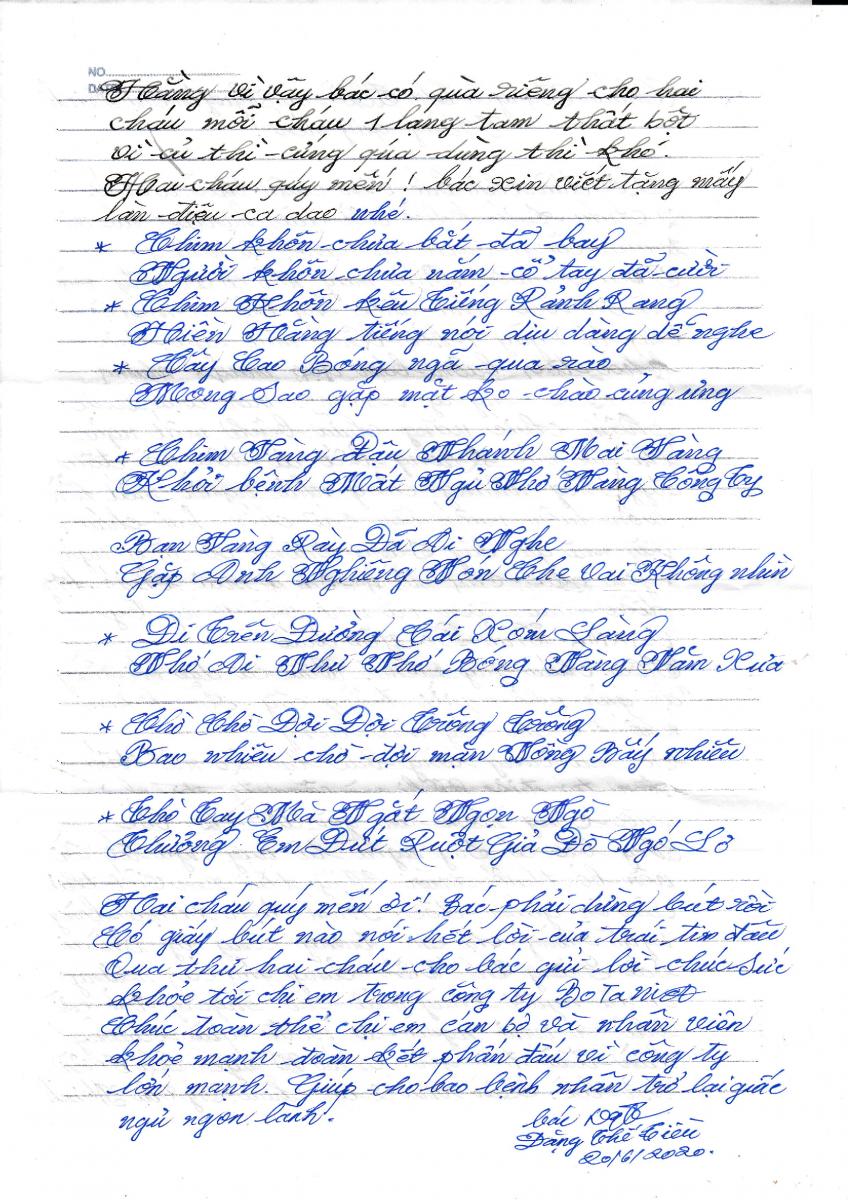 NO
Hằng vì vậy bác có quà riêng cho hai
cháu mỗi cháu 1 lạng tam thất bột
vì củ thì cứng qúa dùng thì khó.
Hai cháu qúy mến! bác xin viết tặng mấy
làn điệu ca dao nhé.
* Chim khôn chưa bắt đã bay
Người khôn chưa nắm cổ tay đã cười
* Chim Khôn kêu Tiếng Rảnh Rang
Hiền Hằng tiếng nói dịu dàng dễ nghe
* Cây Cao Bóng ngã qua rào
Mong Sao gặp mặt ko chào cũng ưng
* Chim Vàng Đậu Nhánh Mai Vàng
Khỏi bệnh Mất Ngủ Nhớ Nàng Công Ty
Ban Vàng Rày Đã Đi Nghe
Gặp Anh Nghiêng Nón Che Vai Không nhìn
* Đi Trên Đường Cái Xóm Làng
Nhớ Ai Như Nhớ Bóng Nàng Năm Xưa
* Chờ Chờ Đợi Đợi Trông Trông
Bao nhiêu chờ đợi mặn Nồng Bấy nhiêu
* Thò Tay Mà Ngắt Ngọn Ngò
Thương Em Đứt Ruột Giả Đò Ngó Lơ
Hai cháu quý mến ơi! Bác phải dừng bút rồi
Có giấy bút nào nói hết lời của trái tim đâu
Qua thư hai cháu cho bác gửi lời chúc sức
khỏe tới chị em trong công ty BoTaNia
Chúc toàn thể chị em cán bộ và nhân viên
khỏe mạnh đoàn kết phấn đấu vì công ty
lớn mạnh. Giúp cho bao bệnh nhân trở lại giấc
ngủ ngon lành.
bác
Đặng Thế Tiến
20/6/2020.